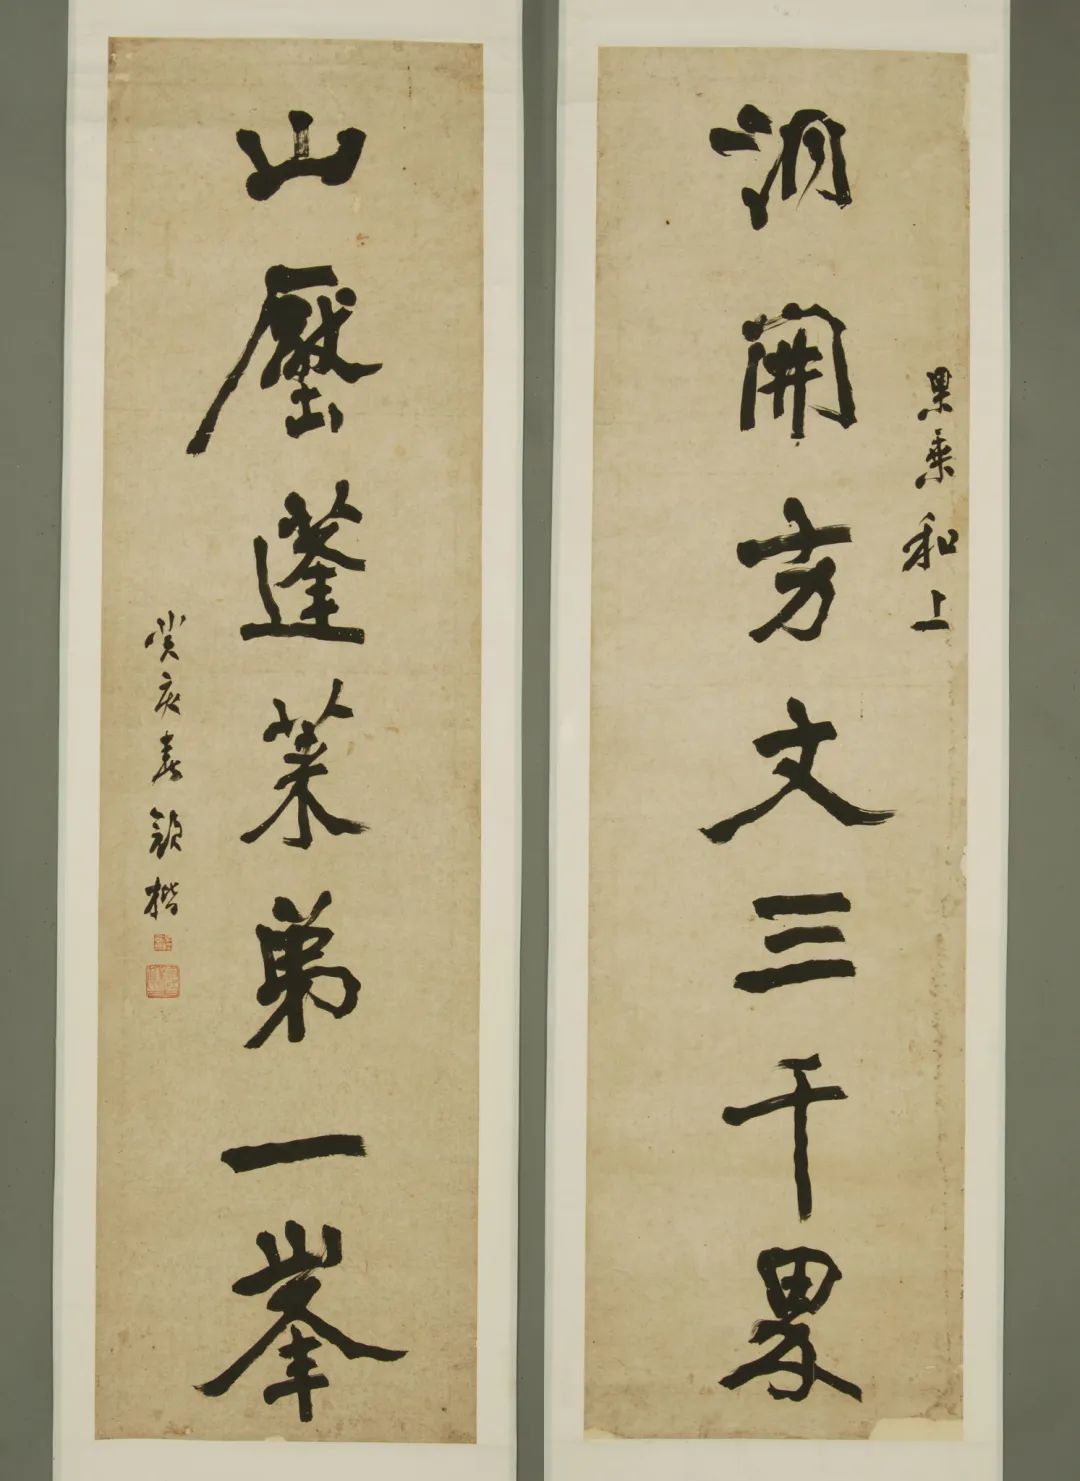 果乘和上
洞開方丈三千界
山壓蓬萊弟一峯
癸亥春 楷